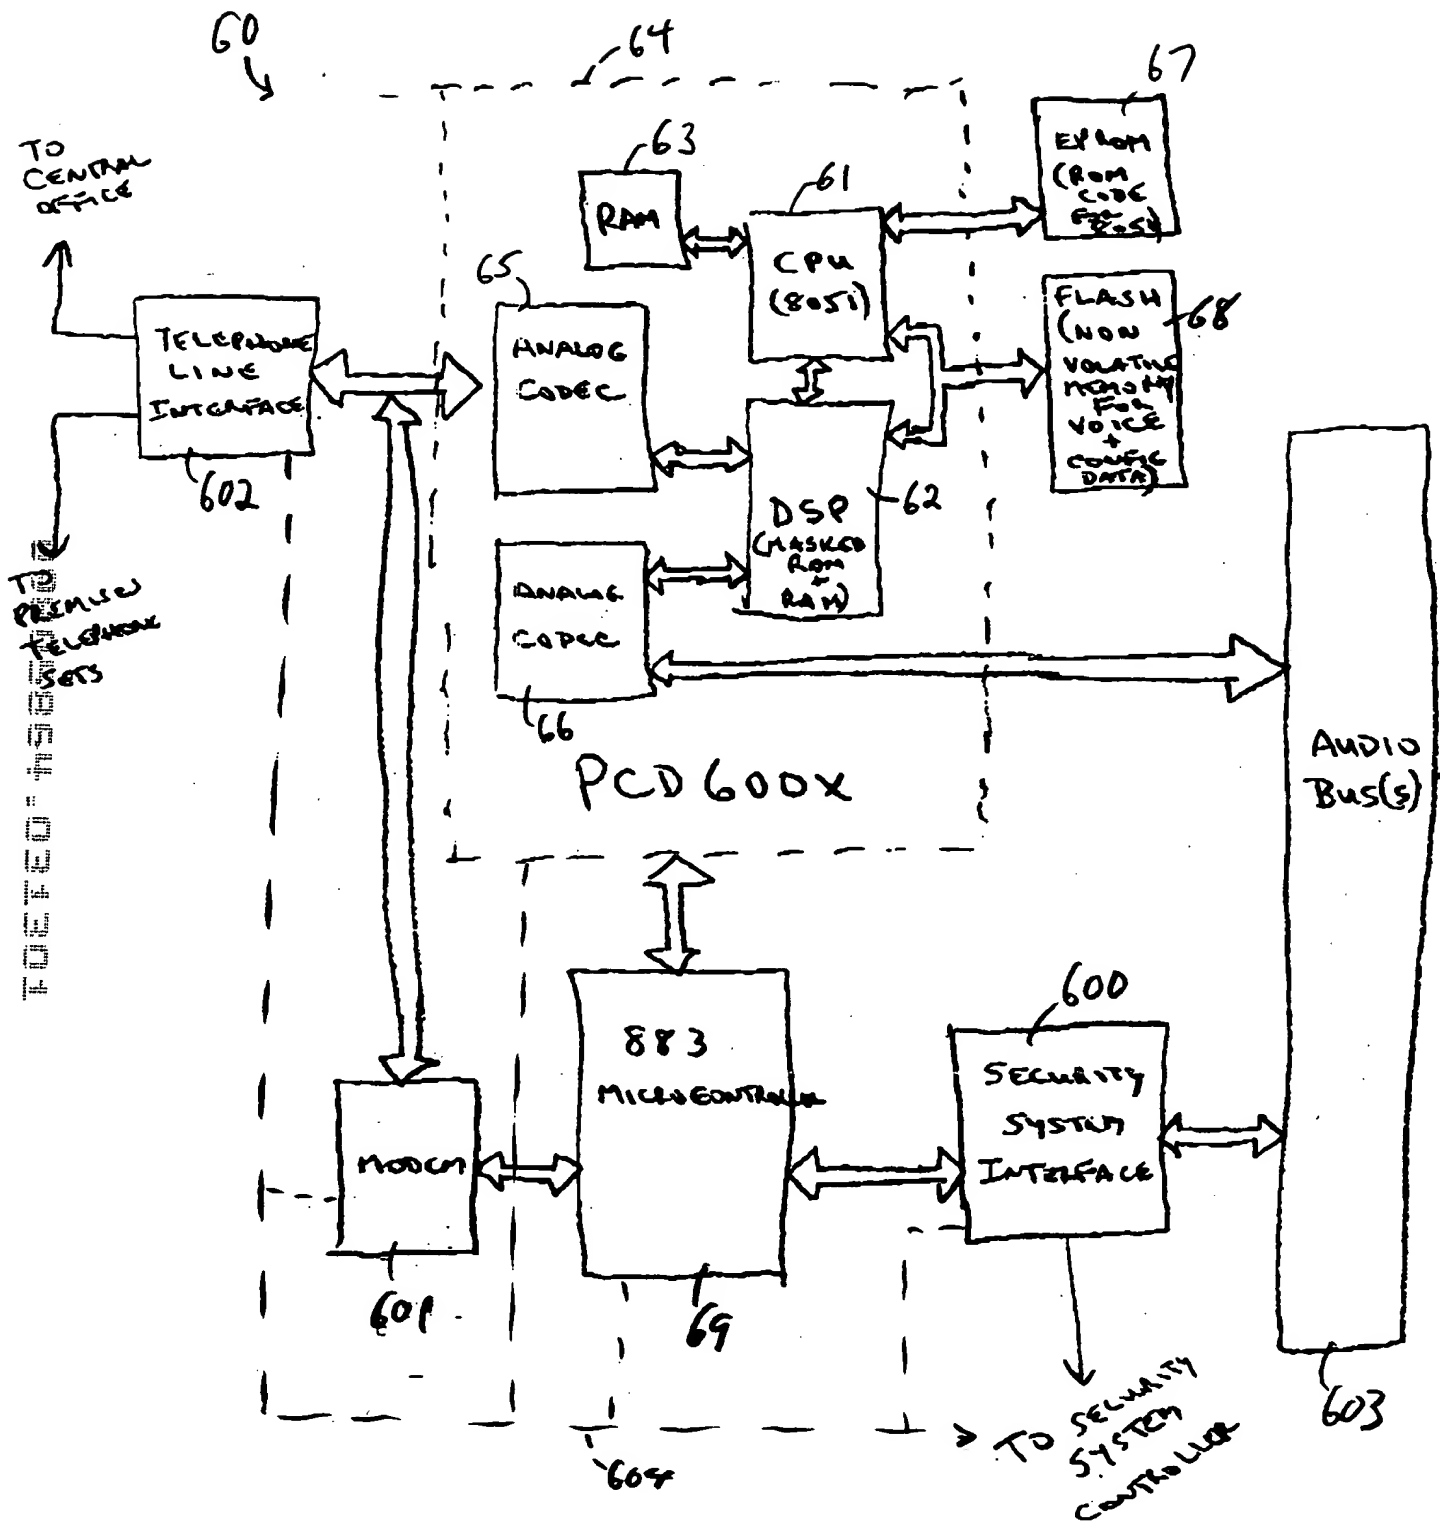 60
64
67
TO
CENTRAL
OFFICE
63
RAM
61
CPU
(8051)
EPROM
(ROM
CODE
FOR
8051)
65
ANALOG
CODEC
TELEPHONE
LINE
INTERFACE
602
FLASH
(NON
VOLATILE
MEMORY
FOR
VOICE
+
CONFIG
DATA)
68
DSP
(MASKED
ROM
+
RAM)
62
TO
PREMISES
TELEPHONE
SETS
ANALOG
CODEC
66
PCD 600X
AUDIO
BUS(S)
883
MICROCONTROLLER
69
600
SECURITY
SYSTEM
INTERFACE
MODEM
601
603
604
TO SECURITY
SYSTEM
CONTROLLER